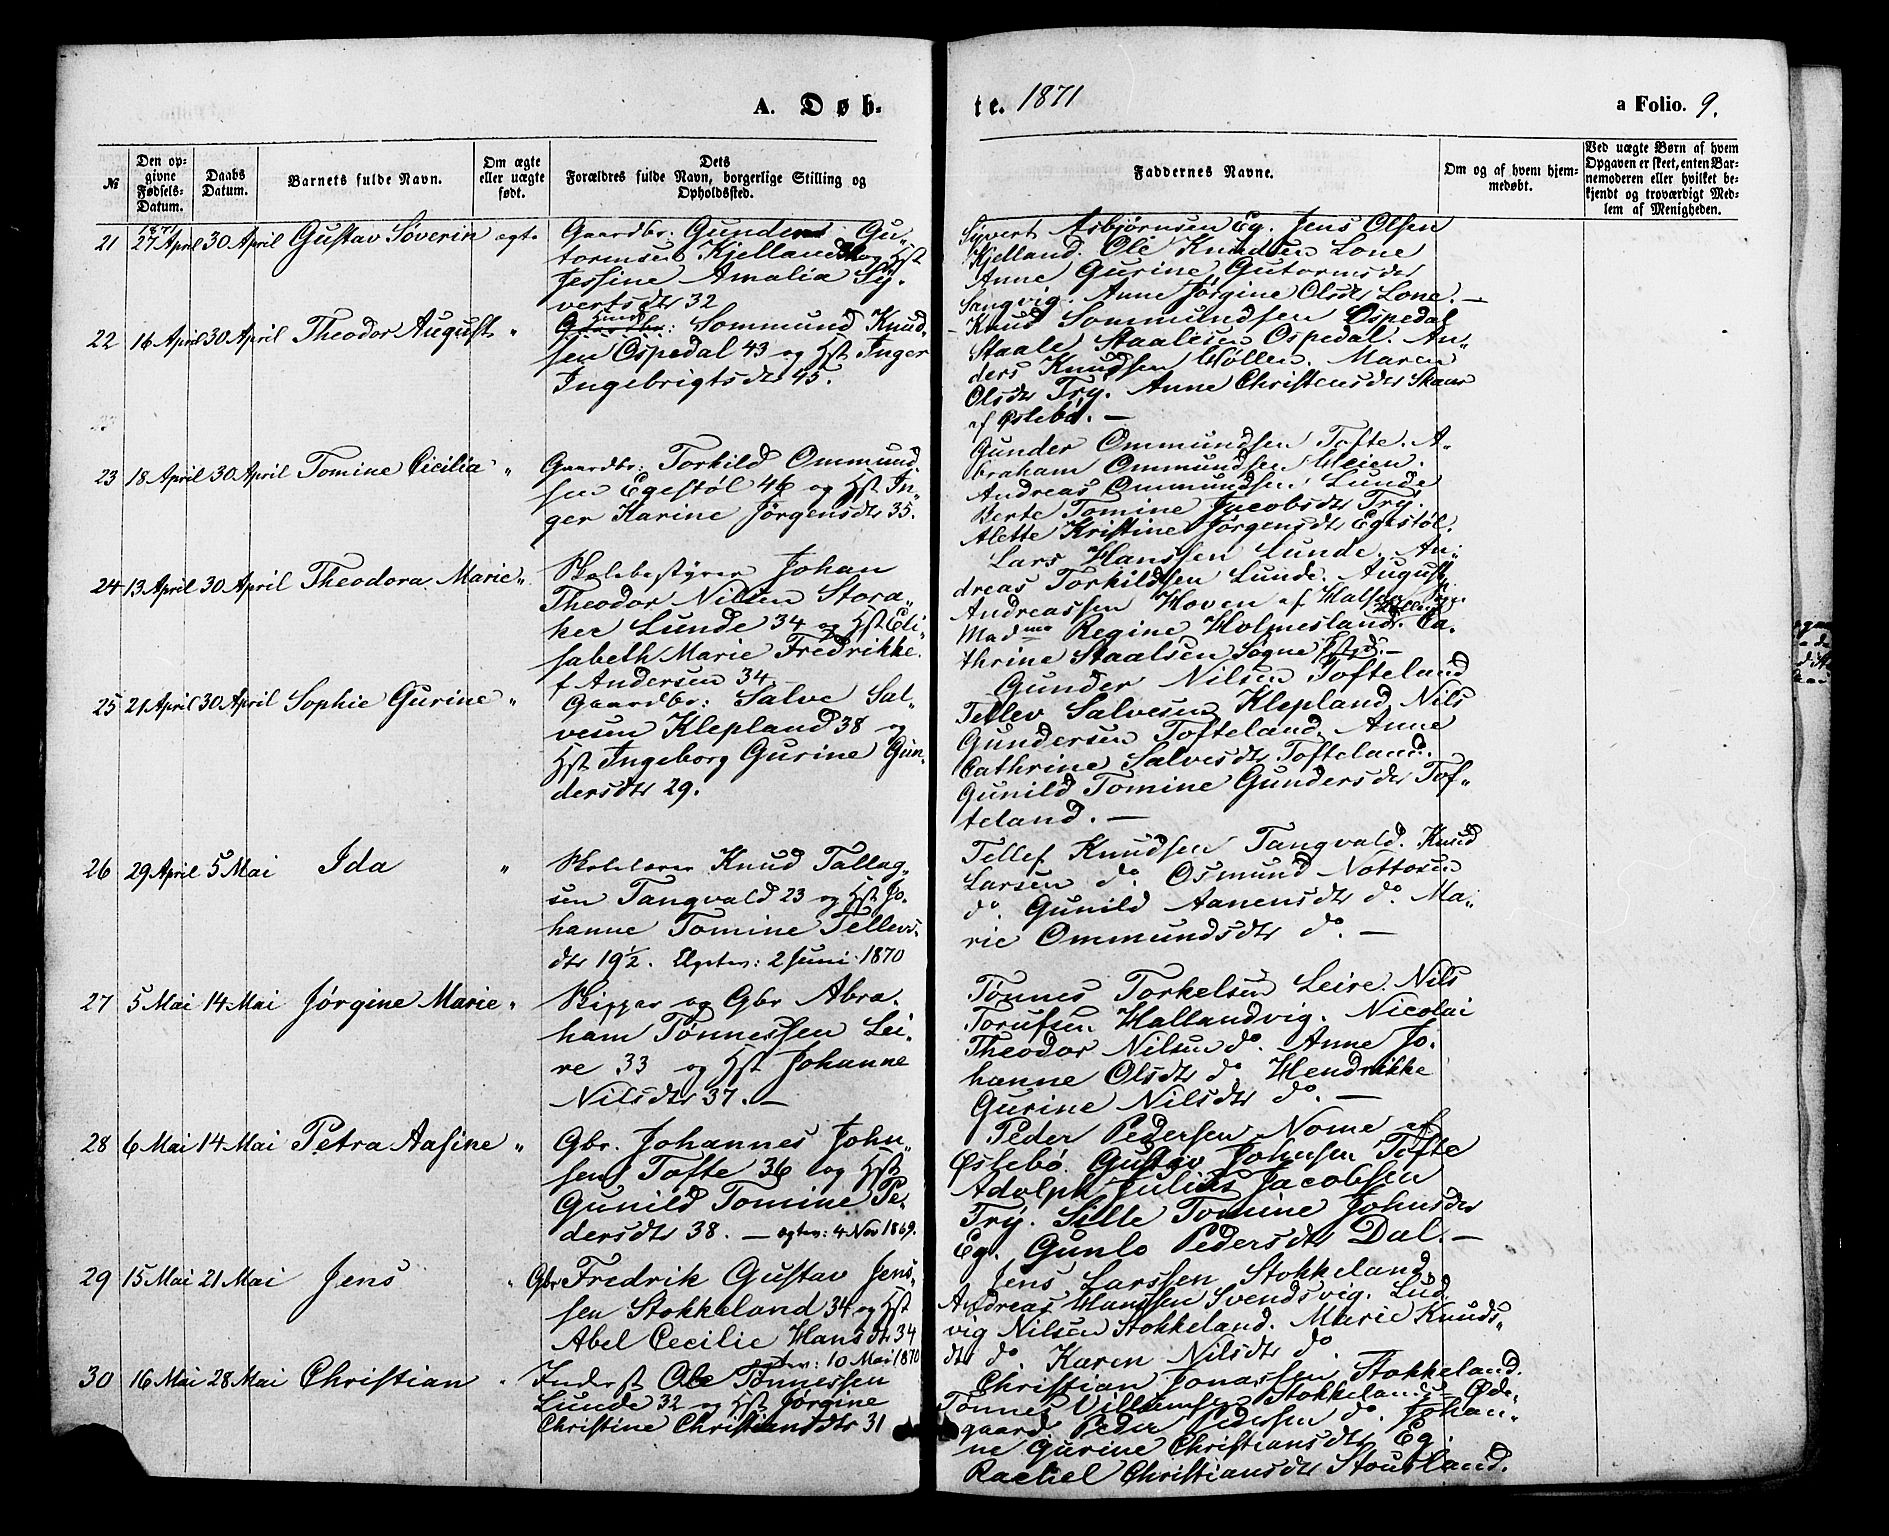 A. Døb-
te. 1871
a Folio. 9.
№
Den op-
givne
Fødsels-
Datum.
Daabs
Datum.
Barnets fulde Navn.
Om ægte
eller uægte
født.
Dets
Forældres fulde Navn, borgerlige Stilling og
Opholdssted.
Faddernes Navne.
Om og af hvem hjem-
medøbt.
Ved uægte Børn af hvem
Opgaven er skeet, enten Bar-
nemoderen eller hvilket be-
kjendt og troværdigt Med-
lem af Menigheden.
1871
21 27 April 30 April Gustav Søverin egt.
Gaardbr. Gunder Gu-
tormsen Kjelland og Hst
Jessine Amalia Sy-
vertsdtr 32
Syvert Asbjørnsen Eg. Jens Olsen
Kjelland. Ole Knudsen Lone
Anne Gurine Gutormsdtr
Sangvig. Anne Jørgine Olsdtr Lone. —
22 16 April 30 April Theodor August "
Gaardbr: Sommund Knud-
sen Ospedal 43 og Hst Inger
Ingebrigtsdtr 45.
Knud Sommundsen Ospedal
Staale Staalesen Ospedal. An-
ders Knudsen Møllen. Maren
Olsdtr Try. Anne Christensdtr Skaar
af Øslebø. —
23 18 April 30 April Tomine Cicilia "
Gaardbr: Torkild Ommund-
sen Egestøl 46 og Hst In-
ger Karine Jørgensdtr 35.
Gunder Ommundsen Tofte. A-
braham Ommundsen Heien.
Andreas Ommundsen Lunde
Berte Tomine Jacobsdtr Try.
Alette Kristine Jørgensdtr Egestøl.
24 13 April 30 April Theodora Marie "
Skolebestyrer Johan
Theodor Nilsen Stora-
ker Lunde 34 og Hst Eli-
sabeth Marie Fredrikke
f Andersen 34
Lars Hanssen Lunde. An-
dreas Torkildsen Lunde. August
Andreassen Hoven af Halse
Madme Regine Holmesland. Ca-
thrine Staalsen Søgne
25 21 April 30 April Sophie Gurine "
Gaardbr: Salve Sal-
vesen Klepland 38 og
Hst Ingeborg Gurine Gun-
dersdtr 29.
Gunder Nilsen Tofteland
Tellev Salvesen Klepland Nils
Gundersen Tofteland. Anne
Cathrine Salvesdtr Tofteland.
Gunild Tomine Gundersdtr Tof-
teland. —
26 29 April 5 Mai Ida "
Skolelærer Knud Tallag-
sen Tangvald 23 og Hst Jo-
hanne Tomine Tellevs-
dtr 19½. Egtev: 2 Juni 1870
Tellef Knudsen Tangvald. Knud
Larsen do. Osmund Nottosen
do. Gunild Aanensdtr do. Ma-
rie Ommundsdtr do. —
27 5 Mai 14 Mai Jørgine Marie "
Skipper og Gbr Abra-
ham Tønnessen Lei-
re 33 og Hst Johanne
Nilsdtr 37. —
Tønnes Torkelsen Leire. Nils
Torufsen Hallandvig. Nicolai
Theodor Nilsen do. Anne Jo-
hanne Olsdtr do Hendrikke
Gurine Nilsdtr do. —
28 6 Mai 14 Mai Petra Aasine "
Gbr. Johannes John-
sen Tofte 36 og Hst
Gunild Tomine Pe-
dersdtr 38. — egtev: 4 Nov 1869.
Peder Pedersen Nome af
Øslebø. Gustav Johnsen Tofte
Adolph Julius Jacobsen
Try. Sille Tomine Johnsdtr
Eg. Gunlo Pedersdtr Dal. —
29 15 Mai 21 Mai Jens "
Gbr Fredrik Gustav Jens-
sen Stokkeland 34 og Hst
Abel Cecilie Hansdtr 34
egtev: 10 Mai 1870
Jens Larssen Stokkeland.
Andreas Hanssen Svendsvig. Lud-
vig Nilsen Stokkeland. Marie Knuds-
dtr do. Karen Nilsdtr do
30 16 Mai 28 Mai Christian "
Inderst Ole Tønnessen
Lunde 32 og Hst Jørgine
Christine Christiansdtr 31
Christian Jonassen Stokkeland.
Tønnes Villumsen Stokkeland Øde-
gaard. Peder Pedersen do. Johan-
ne Gurine Christiansdtr Eg.
Rachel Christiansdtr Stousland.